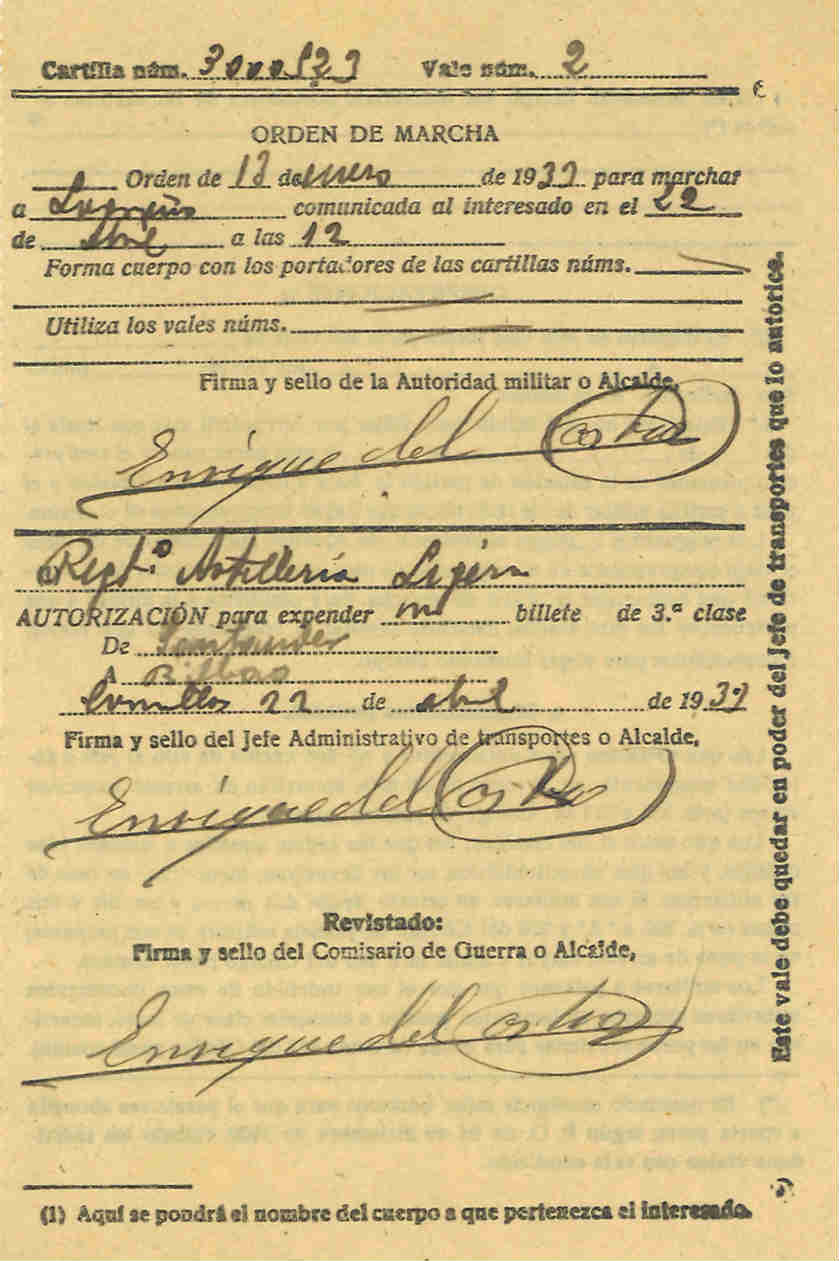 Cartilla núm. Vale núm. 2
ORDEN DE MARCHA
Orden de de enero de 1939 para marchar
a Logroño comunicada al interesado en el 22
de abril a las 12
Forma cuerpo con los portadores de las cartillas núms.
Utiliza los vales núms.
Firma y sello de la Autoridad militar o Alcalde,
Enrique del
Regtº Artillería Ligera
AUTORIZACIÓN para expender un billete de 3.ª clase
De Santander
A Bilbao
Comillas 22 de abril de 1939
Firma y sello del Jefe Administrativo de transportes o Alcalde,
Enrique del
Revistado:
Firma y sello del Comisario de Guerra o Alcalde,
Enrique del
(1) Aquí se pondrá el nombre del cuerpo a que pertenezca el interesado.
Este vale debe quedar en poder del Jefe de transportes que lo autorice.